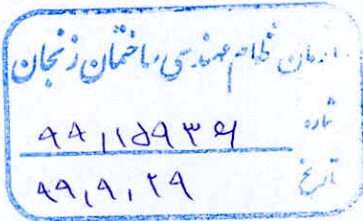 سازمان نظام مهندسی ساختمان زنجان
شماره ۹۹,۱۱۵۹۳۶
تاریخ ۹۹,۹,۲۹